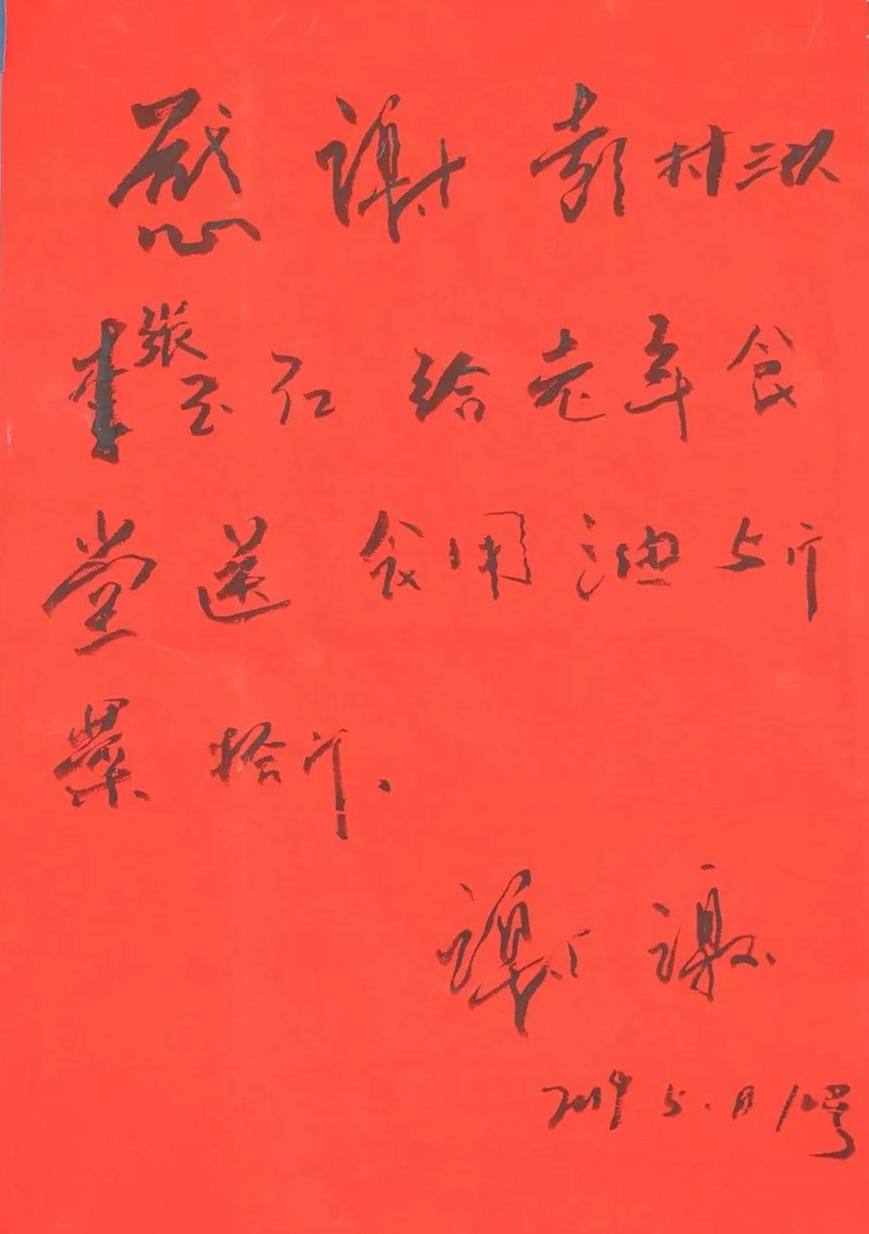 感谢彭村三队
张玉红给老年食
堂送食用油5斤
菜拾斤、
谢谢
2019 5.月10号